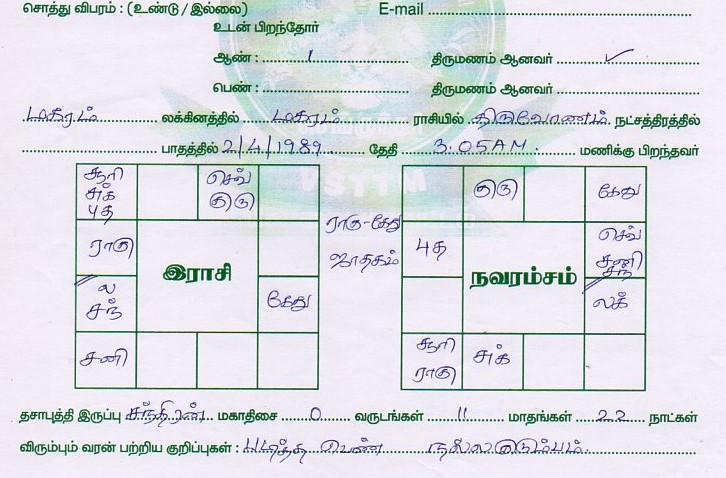 சொத்து விபரம் : (உண்டு / இல்லை) E-mail
உடன் பிறந்தோர்
ஆண் : 1 திருமணம் ஆனவர் ✓
பெண் : திருமணம் ஆனவர்
மகரம் லக்கினத்தில் மகரம் ராசியில் திருவோணம் நட்சத்திரத்தில்
பாதத்தில் 2/4/1989 தேதி 3.05AM. மணிக்கு பிறந்தவர்
சூரி செவ் குரு கேது
சுக் குரு
புத
ராகு ராகு-கேது புத செவ்
ஜாதகம் சனி
சந்
இராசி நவரம்சம்
ல கேது லக்
சந்
சனி சூரி சுக்
ராகு
VSTTM
தசாபுத்தி இருப்பு சந்திரன் மகாதிசை 0 வருடங்கள் 11 மாதங்கள் 22 நாட்கள்
விரும்பும் வரன் பற்றிய குறிப்புகள் : படித்த பெண் நல்ல குடும்பம்.